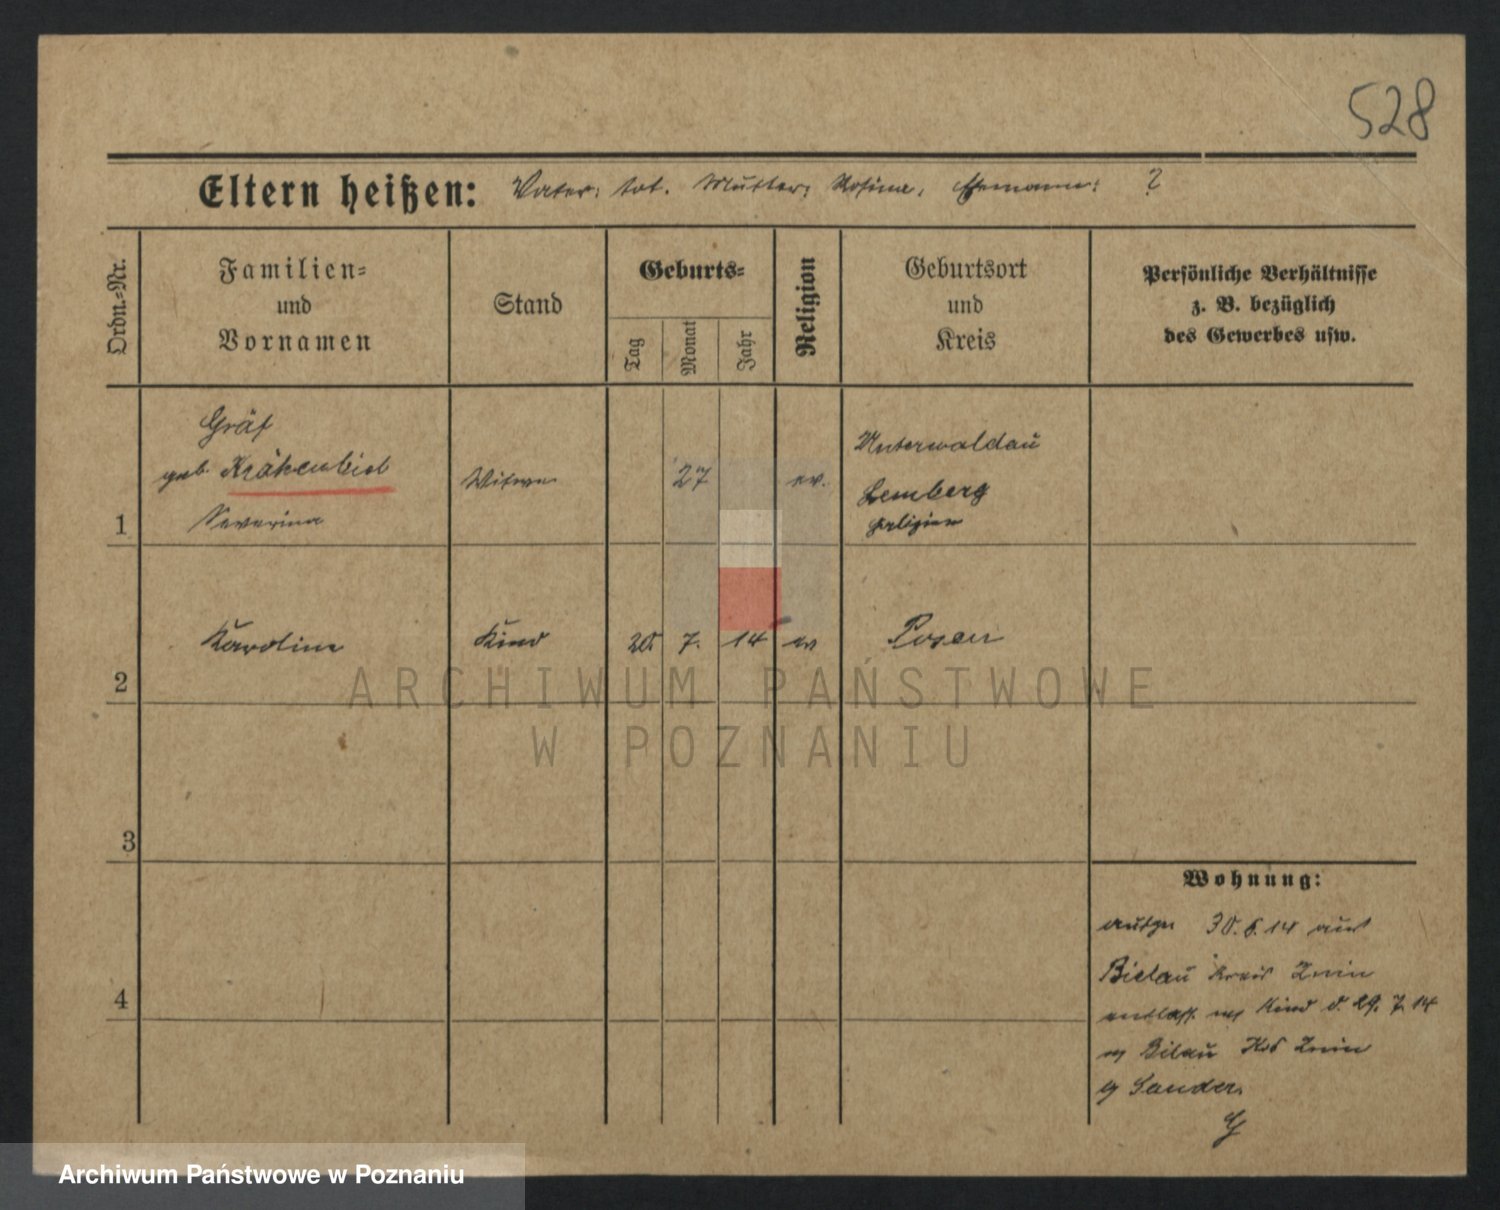 528
Eltern heißen: Vater: tot. Mutter: Rosina, Ehemann: ?
Ordn.-Nr.
Familien-
und
Vornamen
Stand
Geburts-
Tag
Monat
Jahr
Religion
Geburtsort
und
Kreis
Persönliche Verhältnisse
z. B. bezüglich
des Gewerbes usw.
1
Gräf
geb. Krähenbiel
Severina
Witwe
27
ev.
Unterwaldau
Lemberg
Galizien
2
Karoline
Kind
20. 7. 14
ev
Posen
3
4
Wohnung:
30. 6. 14 aus
Bielau Kreis Znin
entlass. mit Kind d. 29. 7. 14
n Bilau Krs Znin
Sander.
ARCHIWUM PAŃSTWOWE
W POZNANIU
Archiwum Państwowe w Poznaniu